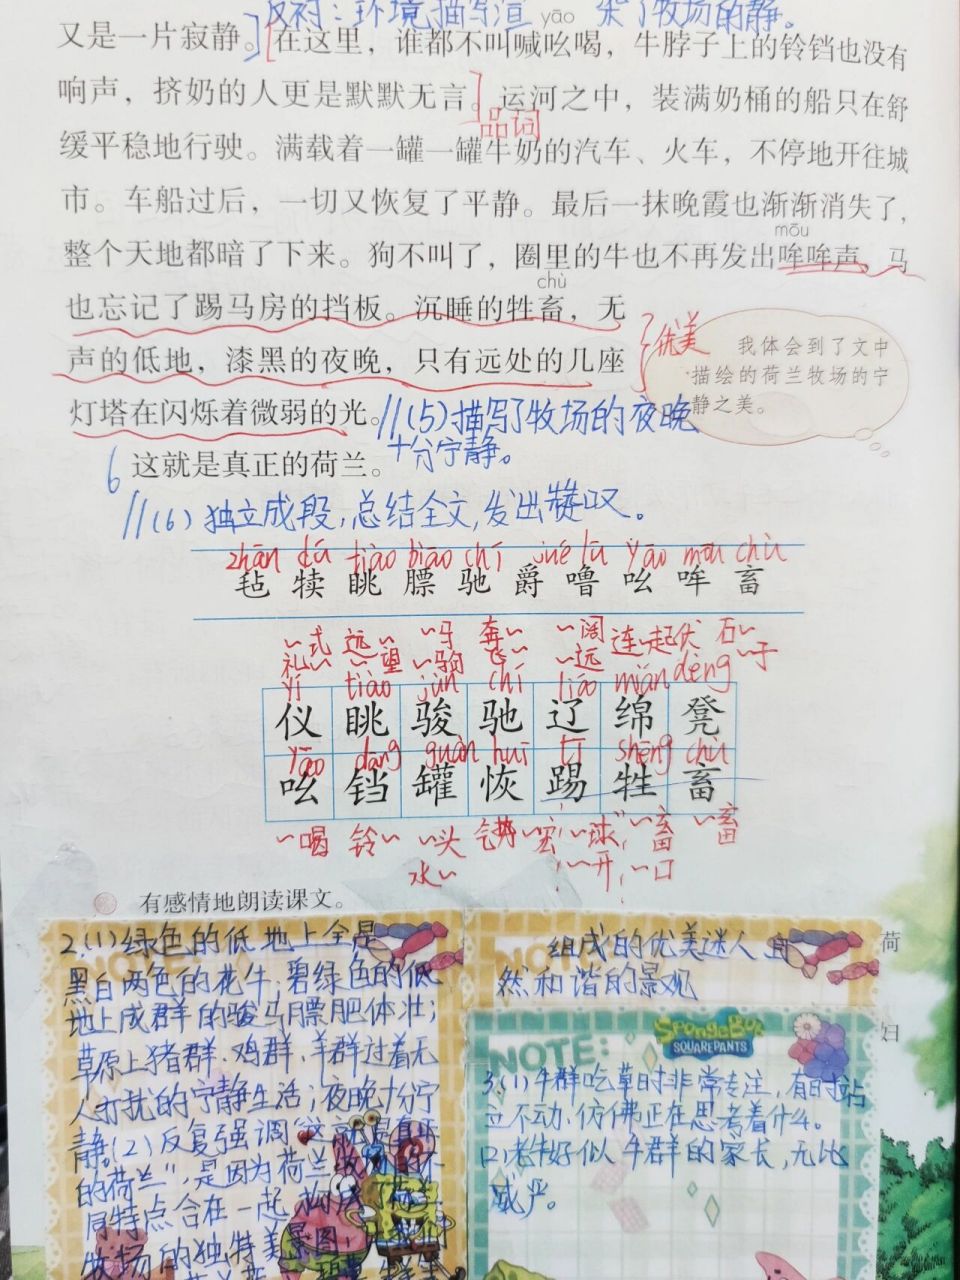 反衬:环境描写渲 了牧场的静。
yāo
又是一片寂静。在这里,谁都不叫喊吆喝,牛脖子上的铃铛也没有
响声,挤奶的人更是默默无言。运河之中,装满奶桶的船只在舒
品词
缓平稳地行驶。满载着一罐一罐牛奶的汽车、火车,不停地开往城
市。车船过后,一切又恢复了平静。最后一抹晚霞也渐渐消失了,
mōu
整个天地都暗了下来。狗不叫了,圈里的牛也不再发出哞哞声,马
chù
也忘记了踢马房的挡板。沉睡的牲畜,无
声的低地,漆黑的夜晚,只有远处的几座
灯塔在闪烁着微弱的光。
优美
我体会到了文中
描绘的荷兰牧场的宁
静之美。
//(5)描写了牧场的夜晚
十分宁静。
6 这就是真正的荷兰。
//(6)独立成段,总结全文,发出赞叹。
zhān dú tiào biāo chí jué lū yāo mōu chù
毡 犊 眺 膘 驰 爵 噜 吆 哞 畜
~式 远~ ~马 奔~ ~阔 连~起伏 石~
礼~ ~望 ~驹 飞~ ~远 ~于
yí tiào jùn chí liáo mián dèng
仪 眺 骏 驰 辽 绵 凳
yāo dāng guàn huī tī shēng chù
吆 铛 罐 恢 踢 牲 畜
~喝 铃~ ~头 ~宏 ~球 ~畜 ~畜
水~ ~开 ~口
有感情地朗读课文。
2.(1)绿色的低地上全是
黑白两色的花牛;碧绿色的低
地上成群的骏马膘肥体壮;
草原上猪群、鸡群、羊群过着无
人打扰的宁静生活;夜晚十分宁
静。(2)反复强调"这就是真正
的荷兰",是因为荷兰
特点合在一起
牧场的独特美景图
NOTE
组成的优美迷人自
然和谐的景观
荷
SpongeBob
SQUAREPANTS
NOTE:
3.(1)牛群吃草时非常专注,有时站
立不动,仿佛正在思考着什么。
(2)老牛好似牛群的家长,无比
威严。